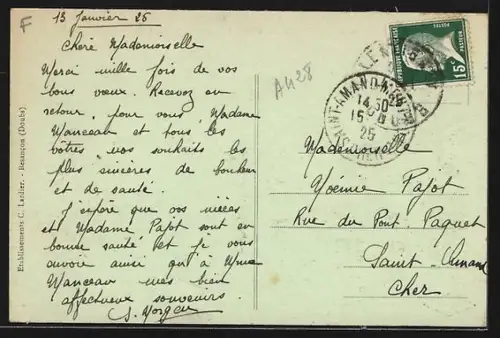 F
13 Janvier 25
Chère Mademoiselle
Merci mille fois de vos
bons vœux. Recevez en
retour, pour vous Madame
Manceau et tous les
vôtres nos souhaits les
plus sincères de bonheur
et de santé.
J'espère que vos nièces
et Madame Pajot sont en
bonne santé et je vous
envoie ainsi qu'à Mme
Manceau mes bien
affectueux souvenirs.
A428
Etablissements C. Lardier. - Besançon (Doubs)
REPUBLIQUE FRANÇAISE
15c
POSTES
PASTEUR
SAINT-AMAND
14 30
15
25
CHER
Mademoiselle
Noémie Pajot
Rue du Pont. Paquet
Saint-Amand
Cher